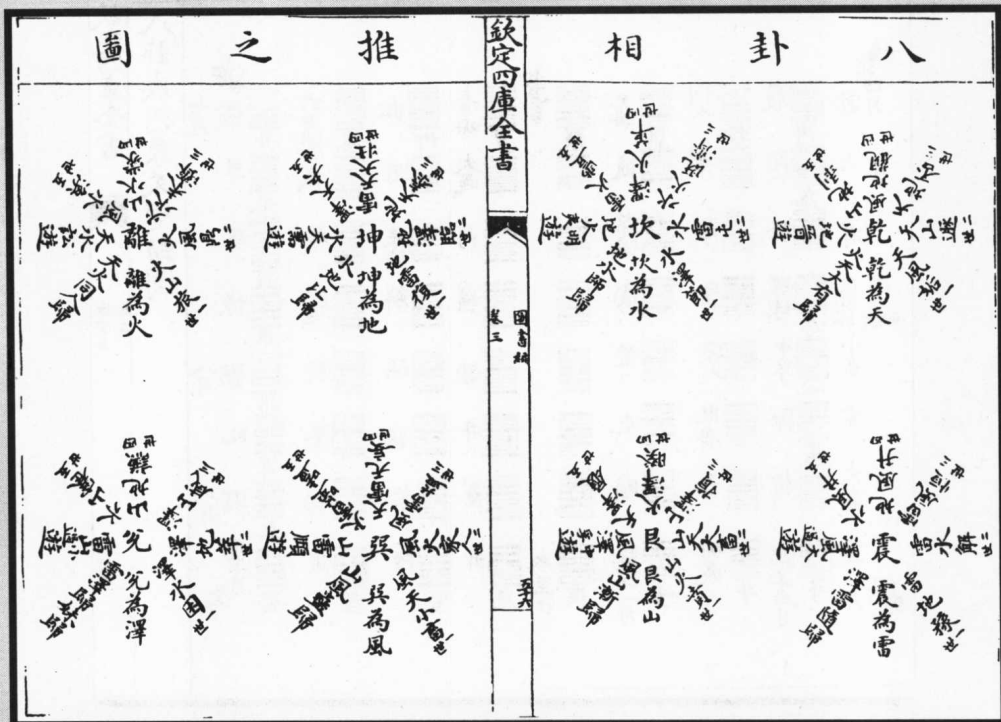 八卦相推之圖
欽定四庫全書
圖書編
卷三
乾
乾為天
天風姤一世
天山遯二世
天地否三世
風地觀四世
山地剝五世
火地晉遊
火天大有歸
坎
坎為水
水澤節一世
水雷屯二世
水火既濟三世
澤火革四世
雷火豐五世
地火明夷遊
地水師歸
震
震為雷
雷地豫一世
雷水解二世
雷風恒三世
地風升四世
水風井五世
澤風大過遊
澤雷隨歸
艮
艮為山
山火賁一世
山天大畜二世
山澤損三世
火澤睽四世
天澤履五世
風澤中孚遊
風山漸歸
坤
坤為地
地雷復一世
地澤臨二世
地天泰三世
雷天大壯四世
澤天夬五世
水天需遊
水地比歸
離
離為火
火山旅一世
火風鼎二世
火水未濟三世
山水蒙四世
風水渙五世
天水訟遊
天火同人歸
巽
巽為風
風天小畜一世
風火家人二世
風雷益三世
天雷无妄四世
火雷噬嗑五世
山雷頤遊
山風蠱歸
兌
兌為澤
澤水困一世
澤地萃二世
澤山咸三世
水山蹇四世
地山謙五世
雷山小過遊
雷澤歸妹歸